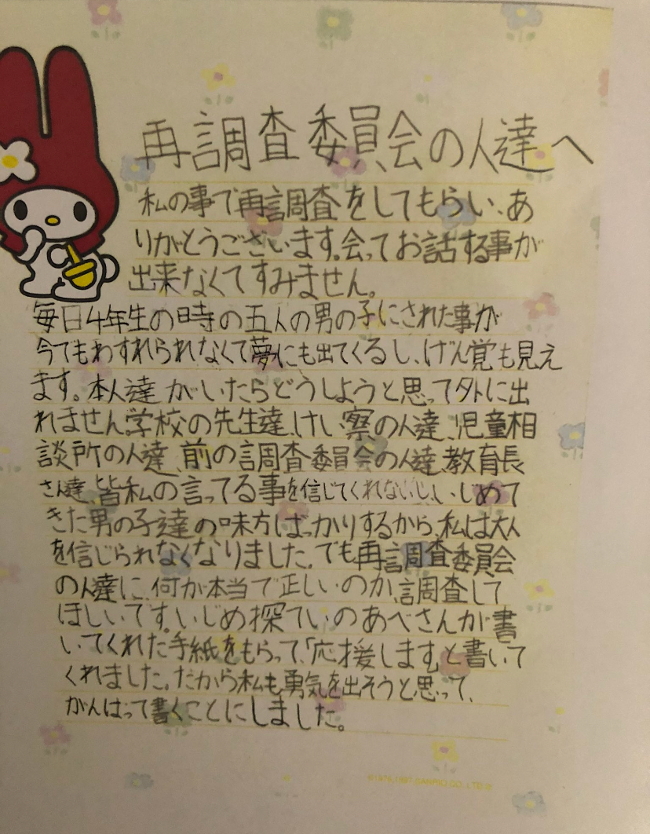 再調査委員会の人達へ
私の事で再調査をしてもらい、あ
りがとうございます。会ってお話する事が
出来なくてすみません。
毎日4年生の時の五人の男の子にされた事が
今でもわすれられなくて夢にも出てくるし、げん覚も見え
ます。本人達がいたらどうしようと思って外に出
れません。学校の先生達、けい察の人達、児童相
談所の人達、前の調査委員会の人達、教育長
さん達、皆私の言ってる事を信じてくれないし、いじめて
きた男の子達の味方ばっかりするから、私は大人
を信じられなくなりました。でも再調査委員会
の人達に、何が本当で正しいのか、調査して
ほしいです。いじめ探ていのあべさんが書
いてくれた手紙をもらって、「応援します」と書いて
くれました。だから私も勇気を出そうと思って、
がんばって書くことにしました。